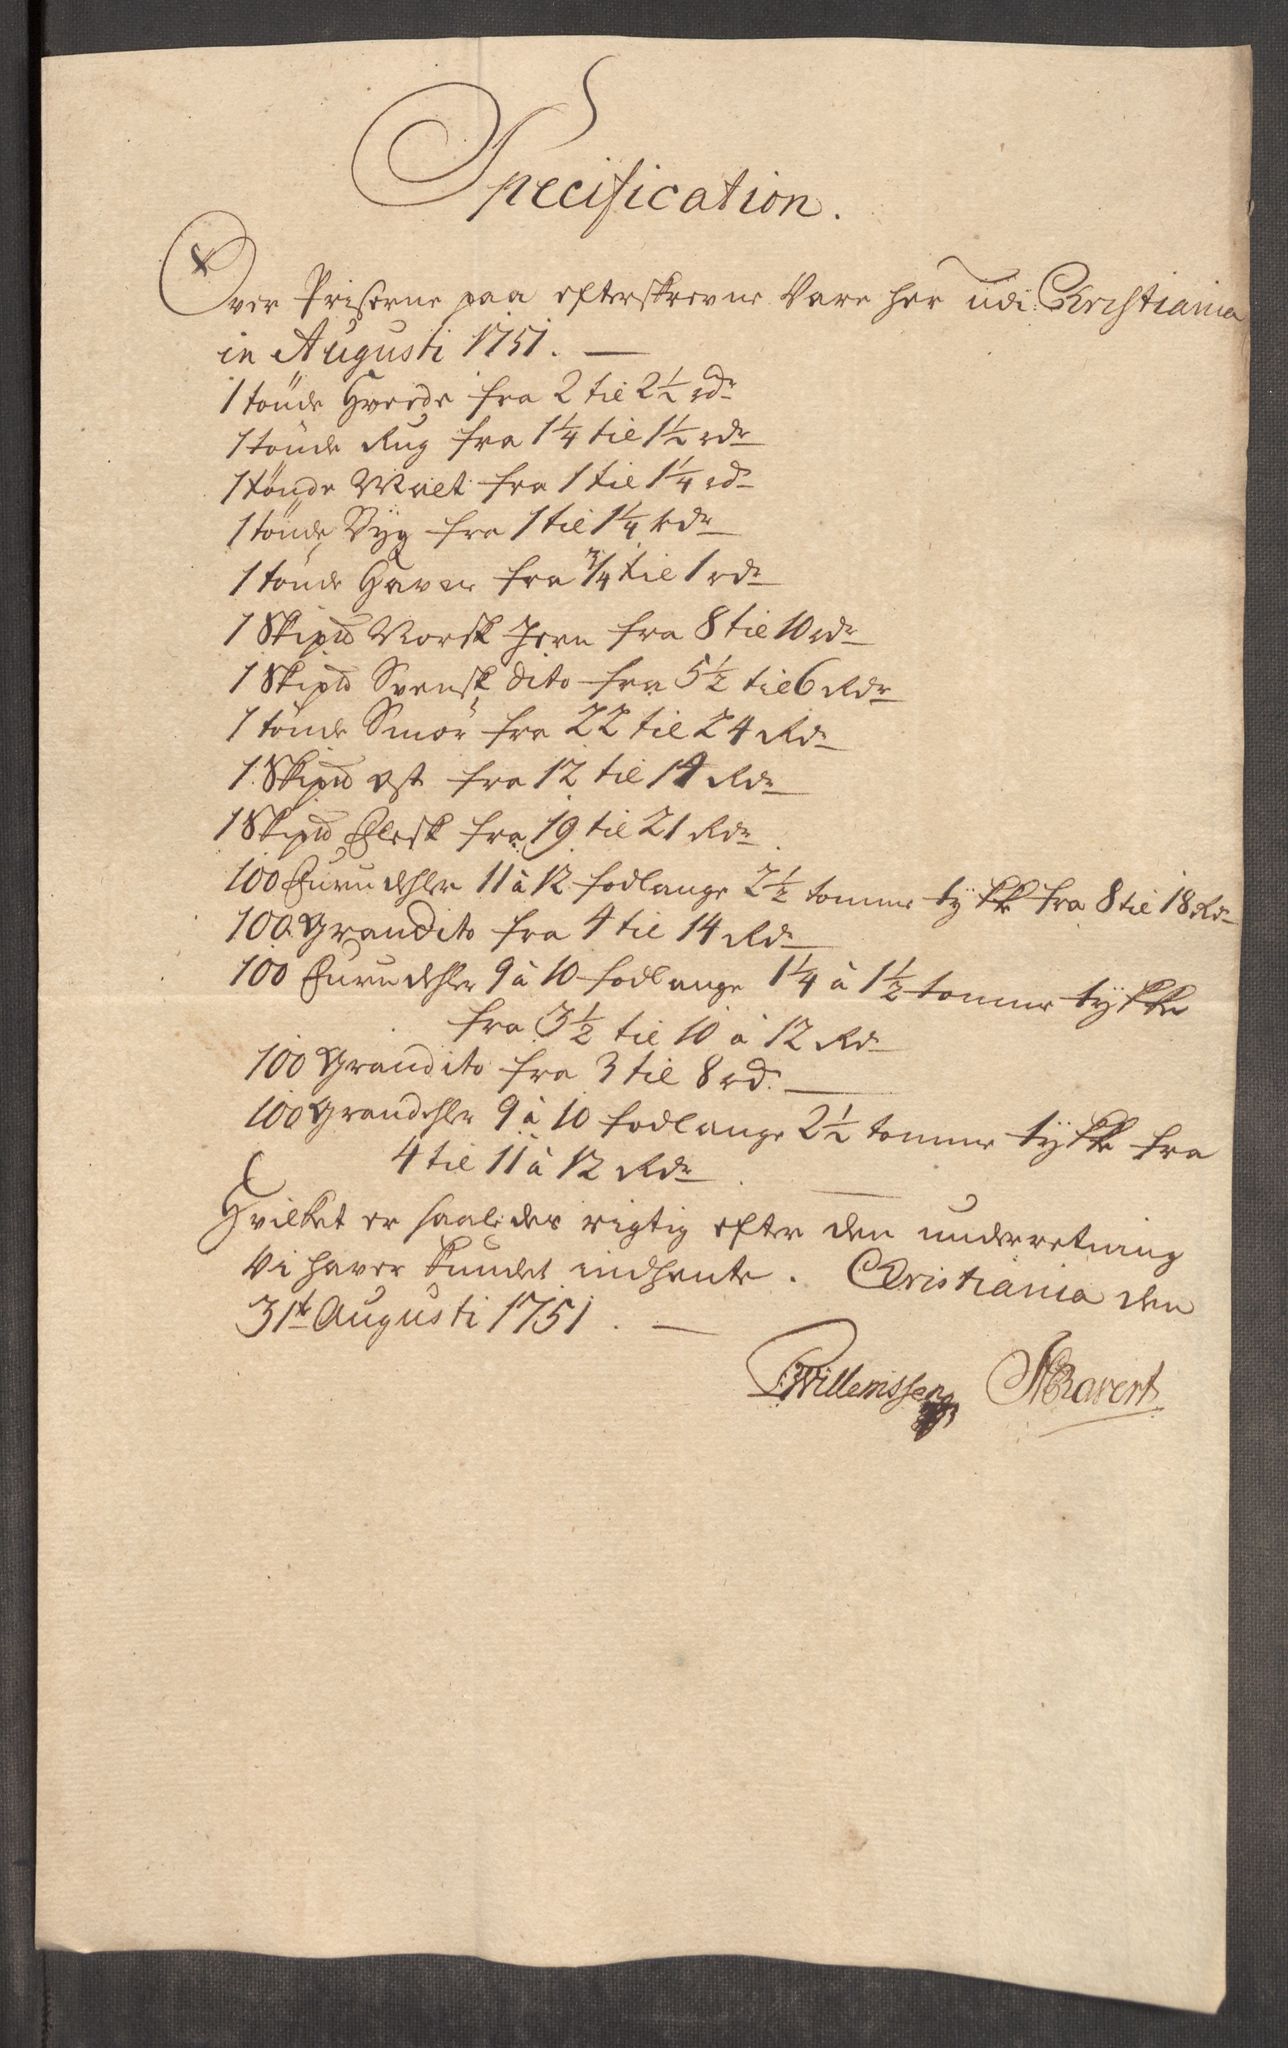 Specification.
Over Priserne paa efterskrevne Vare her udi Christiania
in Augusti 1751. —
1 tönde Hvede fra 2 til 2½ rdr
1 tönde Rug fra 1¼ til 1½ rdr
1 tönde Malt fra 1 til 1¼ rdr
1 tönde Byg fra 1 til 1¼ rdr
1 tönde Havre fra ¾ til 1 rdr
1 Skipd Norsk Jern fra 8 til 10 rdr
1 Skipd Svensk dito fra 5½ til 6 Rdr
1 tönde Smör fra 22 til 24 Rdr
1 Skipd Ost fra 12 til 14 Rdr
1 Skipd Flesk fra 19 til 21 Rdr
100 Furudehler 11 à 12 fodlange 2½ tomme tÿkke fra 8 til 18 Rdr
100 Grandito fra 4 til 14 Rdr
100 Furudehler 9 à 10 fodlange 1¼ à 1½ tomme tÿkke
fra 3½ til 10 à 12 Rdr
100 Grandito fra 3 til 8 rd. —
100 Grandehler 9 à 10 fodlange 2½ tomme tÿkke fra
4 til 11 à 12 Rdr —
Hvilket er saaledes rigtig efter den underretning
Vi haver kundet indhente. Christiania den
31te Augusti 1751. —
Willemssen